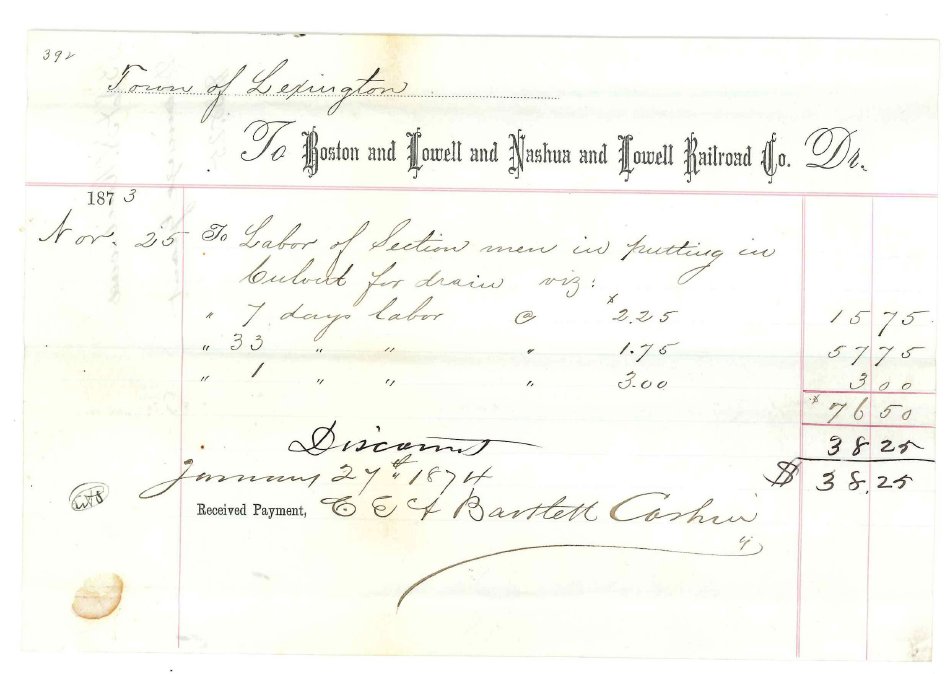 392
Town of Lexington
To Boston and Lowell and Nashua and Lowell Railroad Co. Dr.
1873
Nov. 25 To Labor of Section men in putting in
Culvert for drain viz:
" 7 days labor @ $2.25 15 75
" 33 " " " 1.75 57 75
" 1 " " " 3.00 3 00
$ 76 50
Discount 38 25
January 27th 1874 $ 38.25
Received Payment, C E A Bartlett Cashier